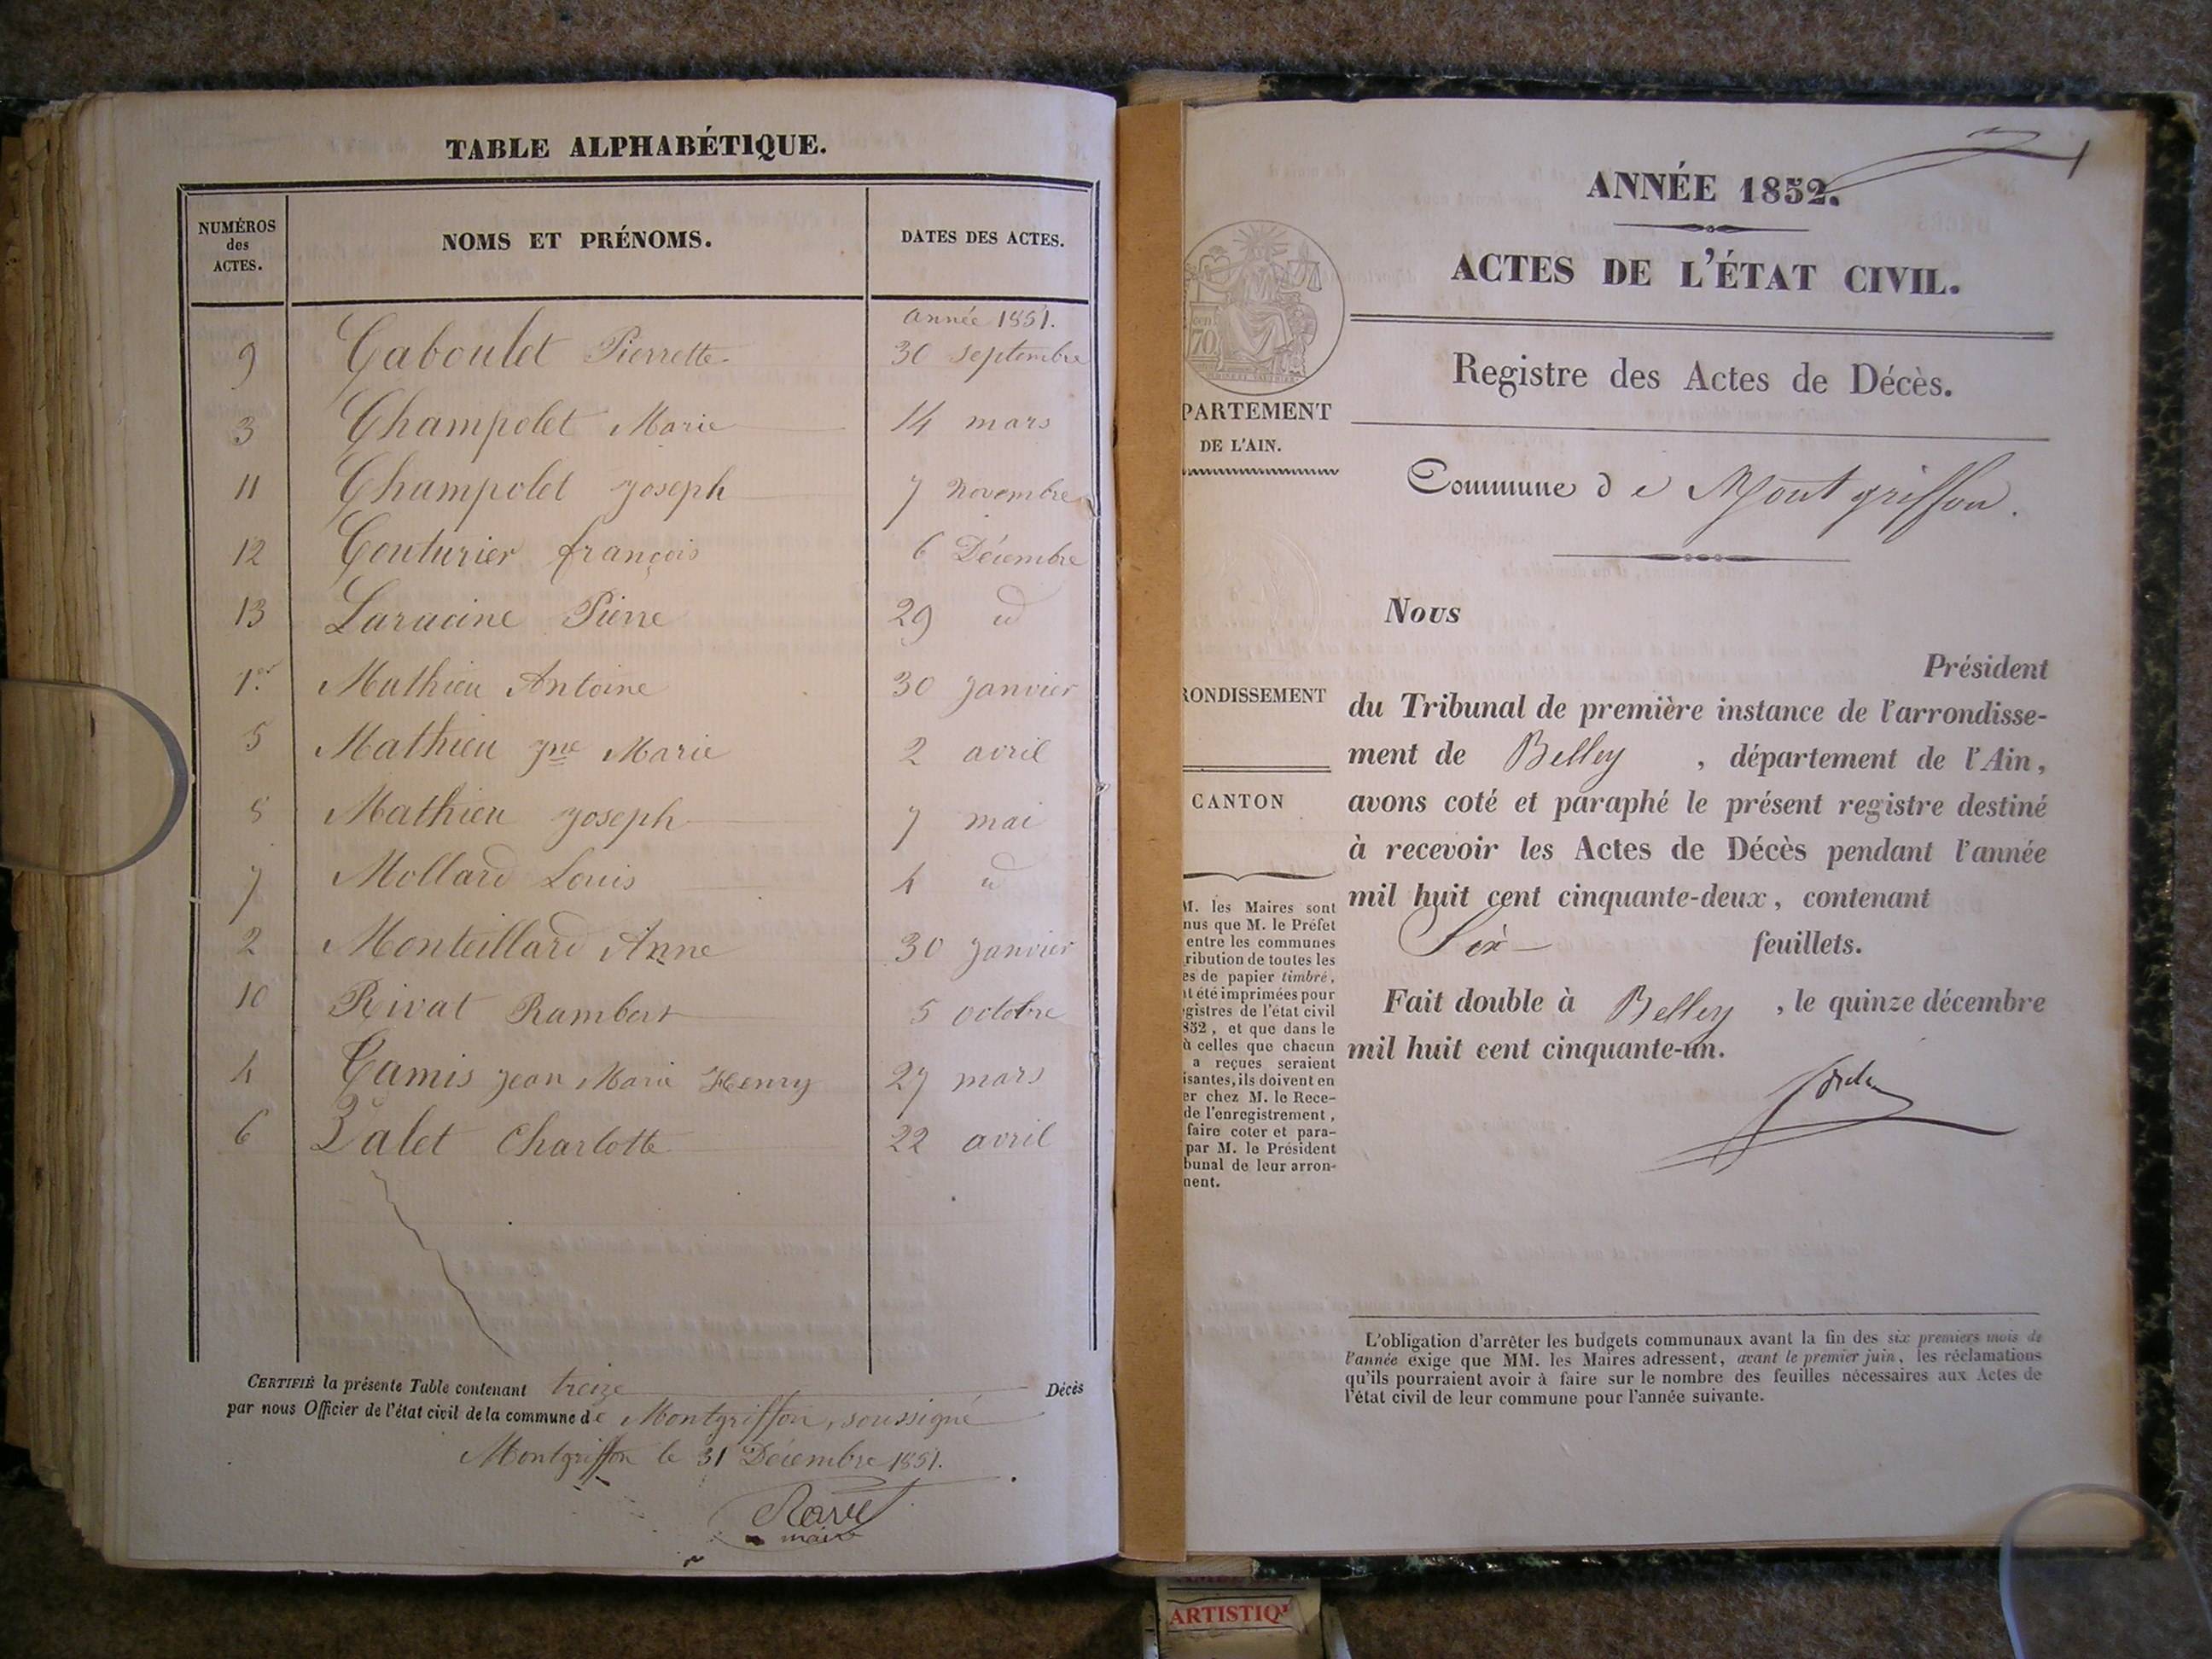 TABLE ALPHABÉTIQUE.
NUMÉROS des ACTES. NOMS ET PRÉNOMS. DATES DES ACTES.
année 1851.
9 Caboulet Pierrette 30 septembre
3 Champolet Marie 14 mars
11 Champolet Joseph 7 novembre
12 Couturier françois 6 Décembre
13 Laracine Pierre 29 id
1er Mathieu Antoine 30 Janvier
5 Mathieu Jne Marie 2 avril
8 Mathieu Joseph 7 mai
7 Mollard Louis 4 id
2 Monteillard Anne 30 Janvier
10 Rivat Rambert 5 octobre
4 Tamis Jean Marie Henry 27 mars
6 Zalet Charlotte 22 avril
CERTIFIÉ la présente Table contenant treize Décès
par nous Officier de l'état civil de la commune de Montgriffon, soussigné
Montgriffon le 31 Décembre 1851.
Ravet
maire
ANNÉE 1852.
ACTES DE L'ÉTAT CIVIL.
Registre des Actes de Décès.
cent
70
PARTEMENT
DE L'AIN.
Commune de Montgriffon.
Nous
Président
RONDISSEMENT
du Tribunal de première instance de l'arrondisse-
ment de Belley, département de l'Ain,
CANTON
avons coté et paraphé le présent registre destiné
à recevoir les Actes de Décès pendant l'année
mil huit cent cinquante-deux, contenant
Six feuillets.
Fait double à Belley, le quinze décembre
mil huit cent cinquante-un.
M. les Maires sont
nus que M. le Préfet
entre les communes
ribution de toutes les
es de papier timbré,
t été imprimées pour
gistres de l'état civil
852, et que dans le
ù celles que chacun
a reçues seraient
isantes, ils doivent en
er chez M. le Rece-
de l'enregistrement,
faire coter et para-
par M. le Président
bunal de leur arron-
nent.
L'obligation d'arrêter les budgets communaux avant la fin des six premiers mois de
l'année exige que MM. les Maires adressent, avant le premier juin, les réclamations
qu'ils pourraient avoir à faire sur le nombre des feuilles nécessaires aux Actes de
l'état civil de leur commune pour l'année suivante.
ARTISTIQ